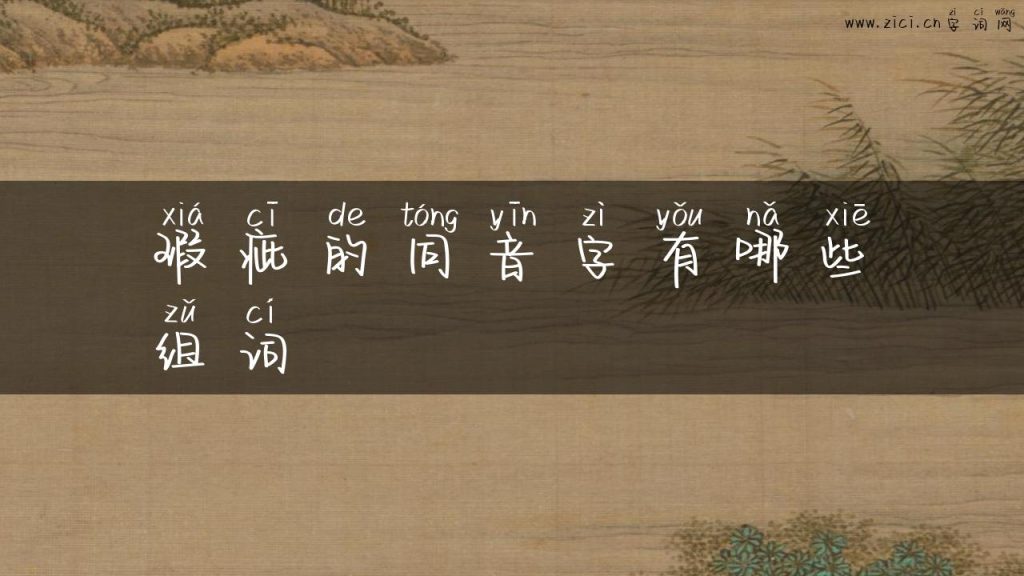 zì cí wǎng
www.zici.cn 字 词 网
xiá cī de tóng yīn zì yǒu nǎ xiē
瑕 疵 的 同 音 字 有 哪 些
zǔ cí
组 词